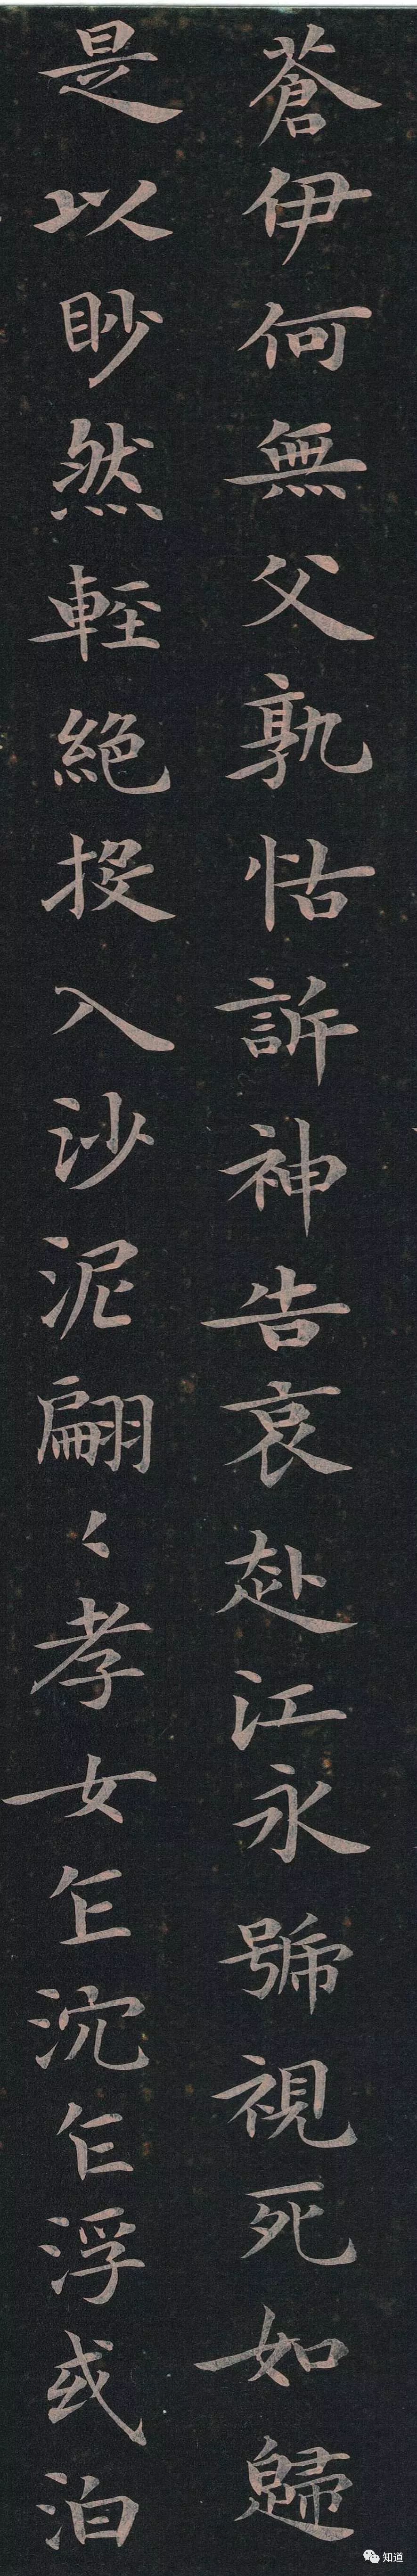 蒼伊何無父孰怙訴神告哀赴江永號視死如歸
是以眇然輕絕投入沙泥翩々孝女乍沉乍浮或泊
知道